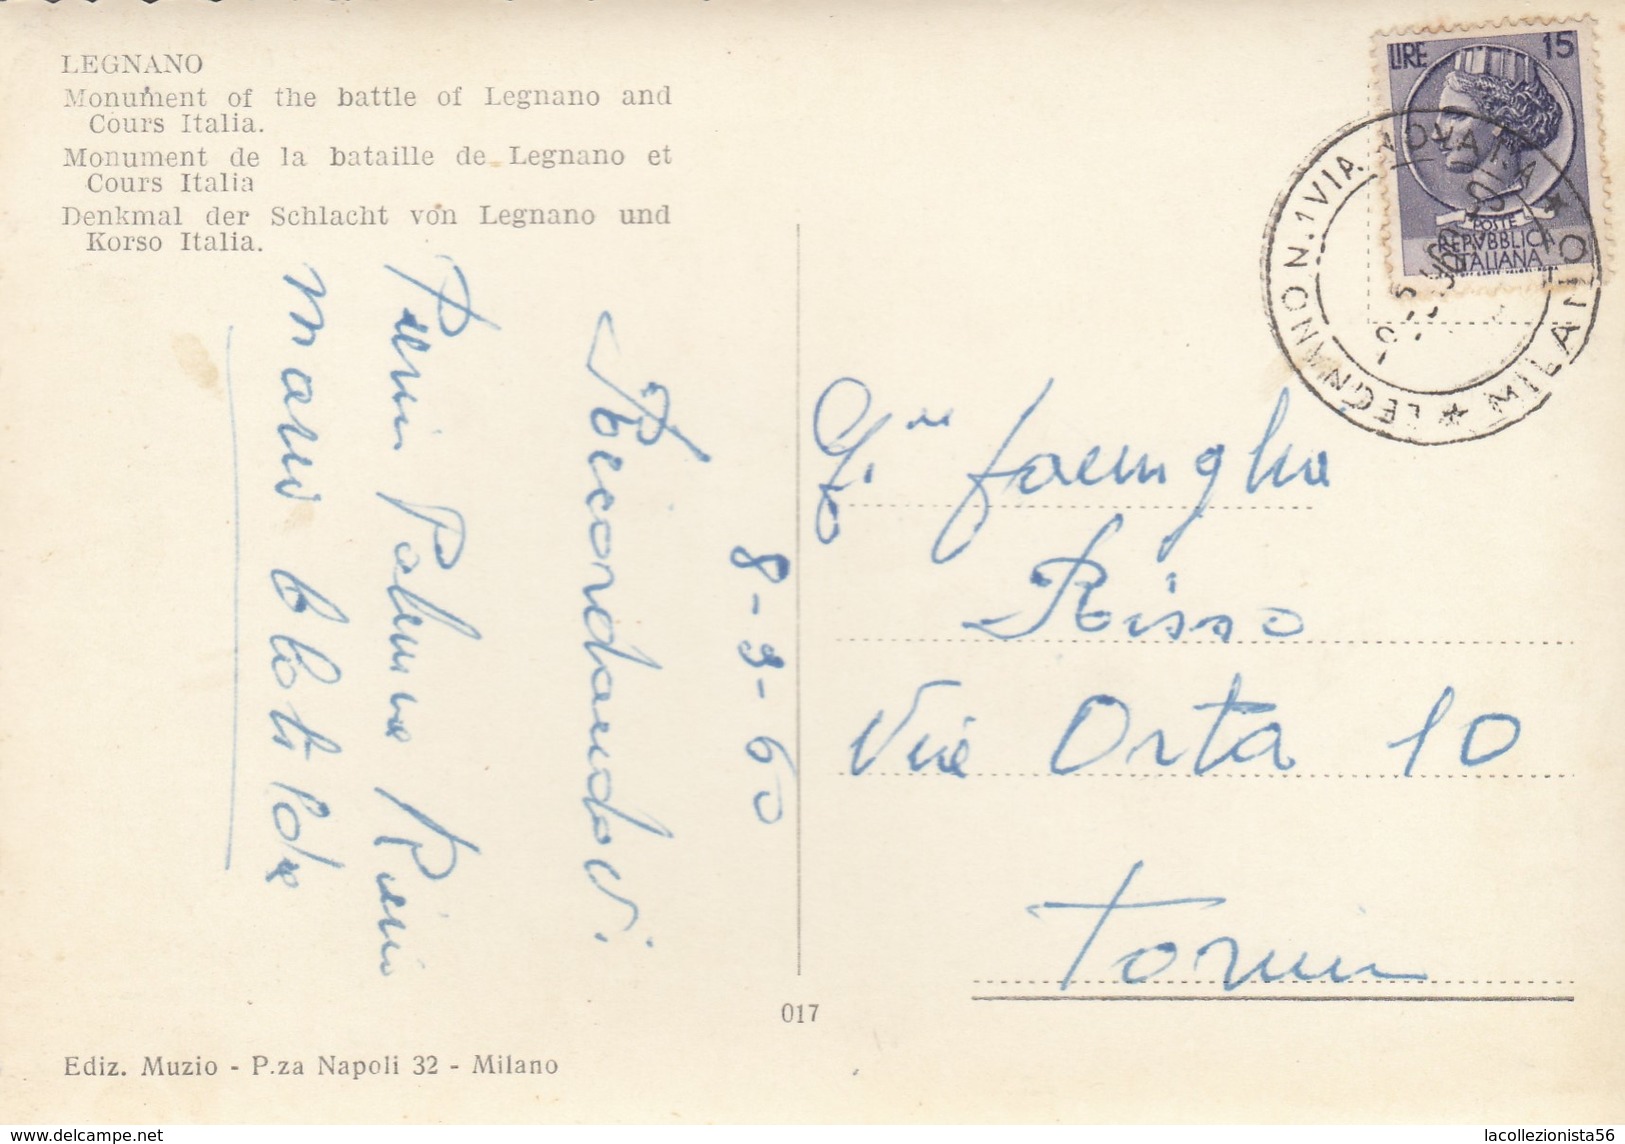 LEGNANO
Monument of the battle of Legnano and
Cours Italia.
Monument de la bataille de Legnano et
Cours Italia
Denkmal der Schlacht von Legnano und
Korso Italia.
8-9-60
Ricordandovi
Pierin Palmira
Mario
LIRE 15
POSTE
REPVBBLICA
ITALIANA
LEGNANO N.1 VIA
MILANO
famiglia
Risso
Via Orta 10
Torino
017
Ediz. Muzio - P.za Napoli 32 - Milano
lacollezionista56
delcampe.net